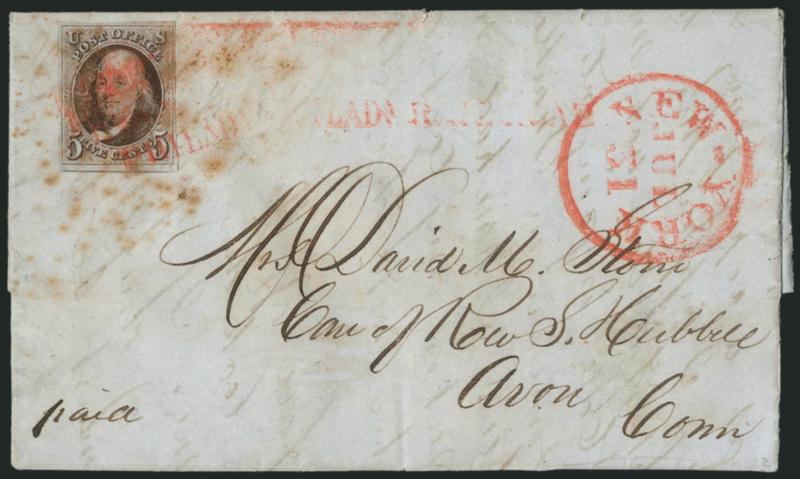 U S
POST OFFICE
5 FIVE CENTS 5
PHILADA RAILROAD
NEW-YORK
JUL
31
Mrs David M. Stone
Care of Rev S. Hubbell
Avon
Conn
paid